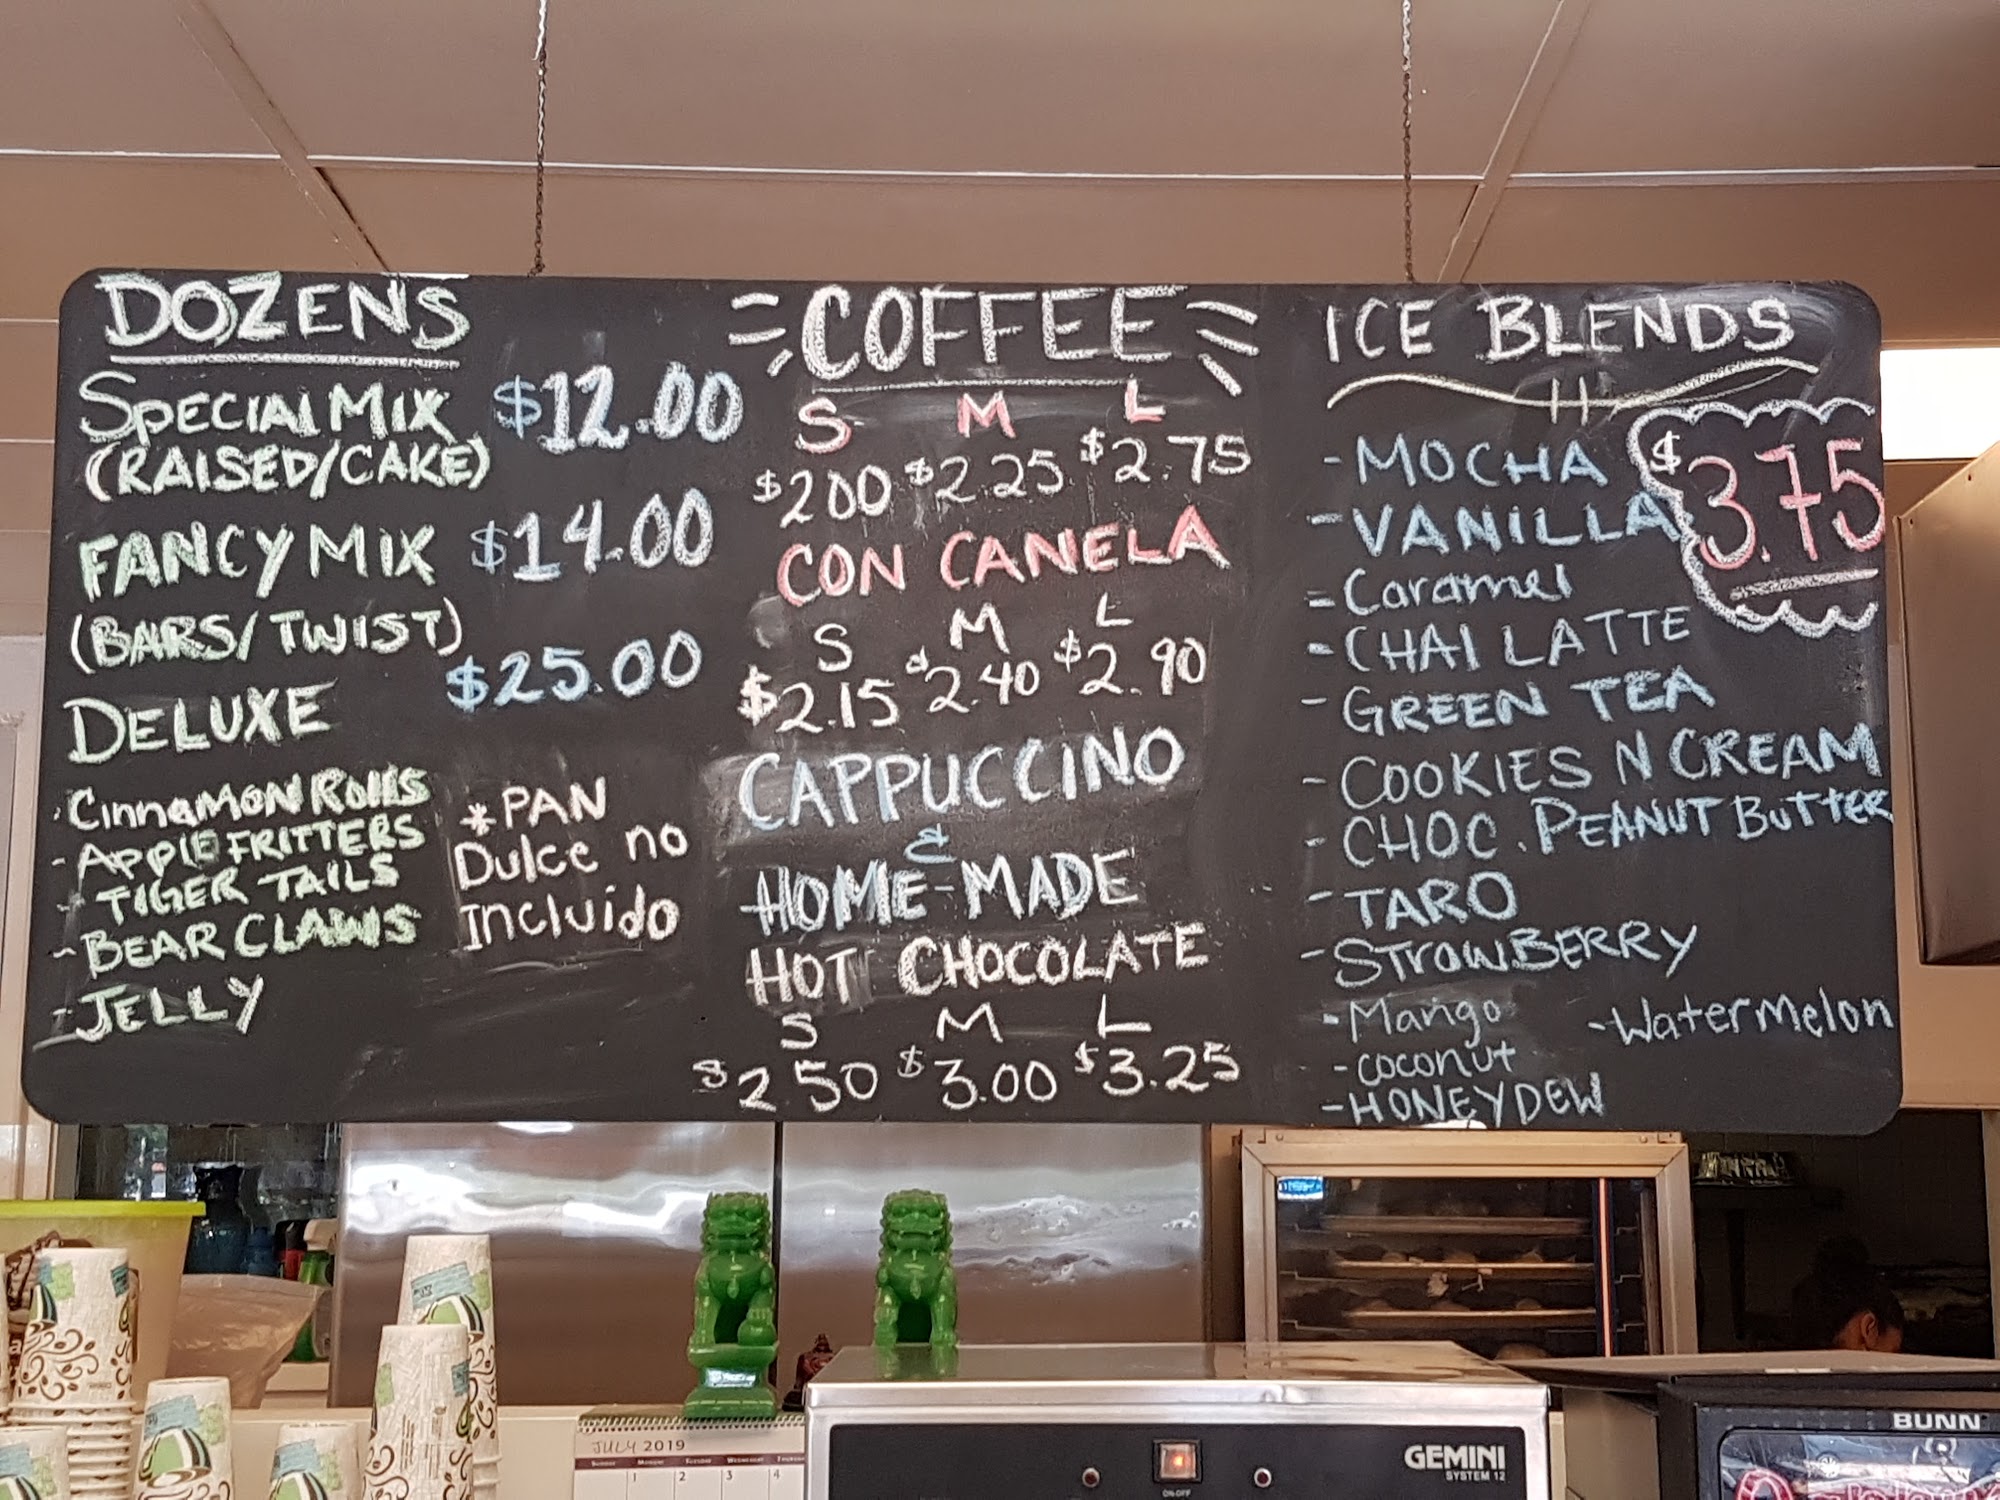 DOZENS
SPECIAL MIX $12.00
(RAISED/CAKE)
FANCY MIX $14.00
(BARS/TWIST)
DELUXE $25.00
- Cinnamon Rolls
- APPLE FRITTERS
- TIGER TAILS
- BEAR CLAWS
- JELLY
*PAN
Dulce no
Incluido
COFFEE
S M L
$2.00 $2.25 $2.75
CON CANELA
S M L
$2.15 $2.40 $2.90
CAPPUCCINO
&
HOME-MADE
HOT CHOCOLATE
S M L
$2.50 $3.00 $3.25
ICE BLENDS
$3.75
- MOCHA
- VANILLA
- Caramel
- CHAI LATTE
- GREEN TEA
- COOKIES N CREAM
- CHOC. PEANUT BUTTER
- TARO
- STRAWBERRY
- Mango - Watermelon
- coconut
- HONEYDEW
JULY 2019
SUNDAY MONDAY TUESDAY WEDNESDAY THURSDAY
1 2 3 4
ON-OFF
GEMINI
SYSTEM 12
BUNN